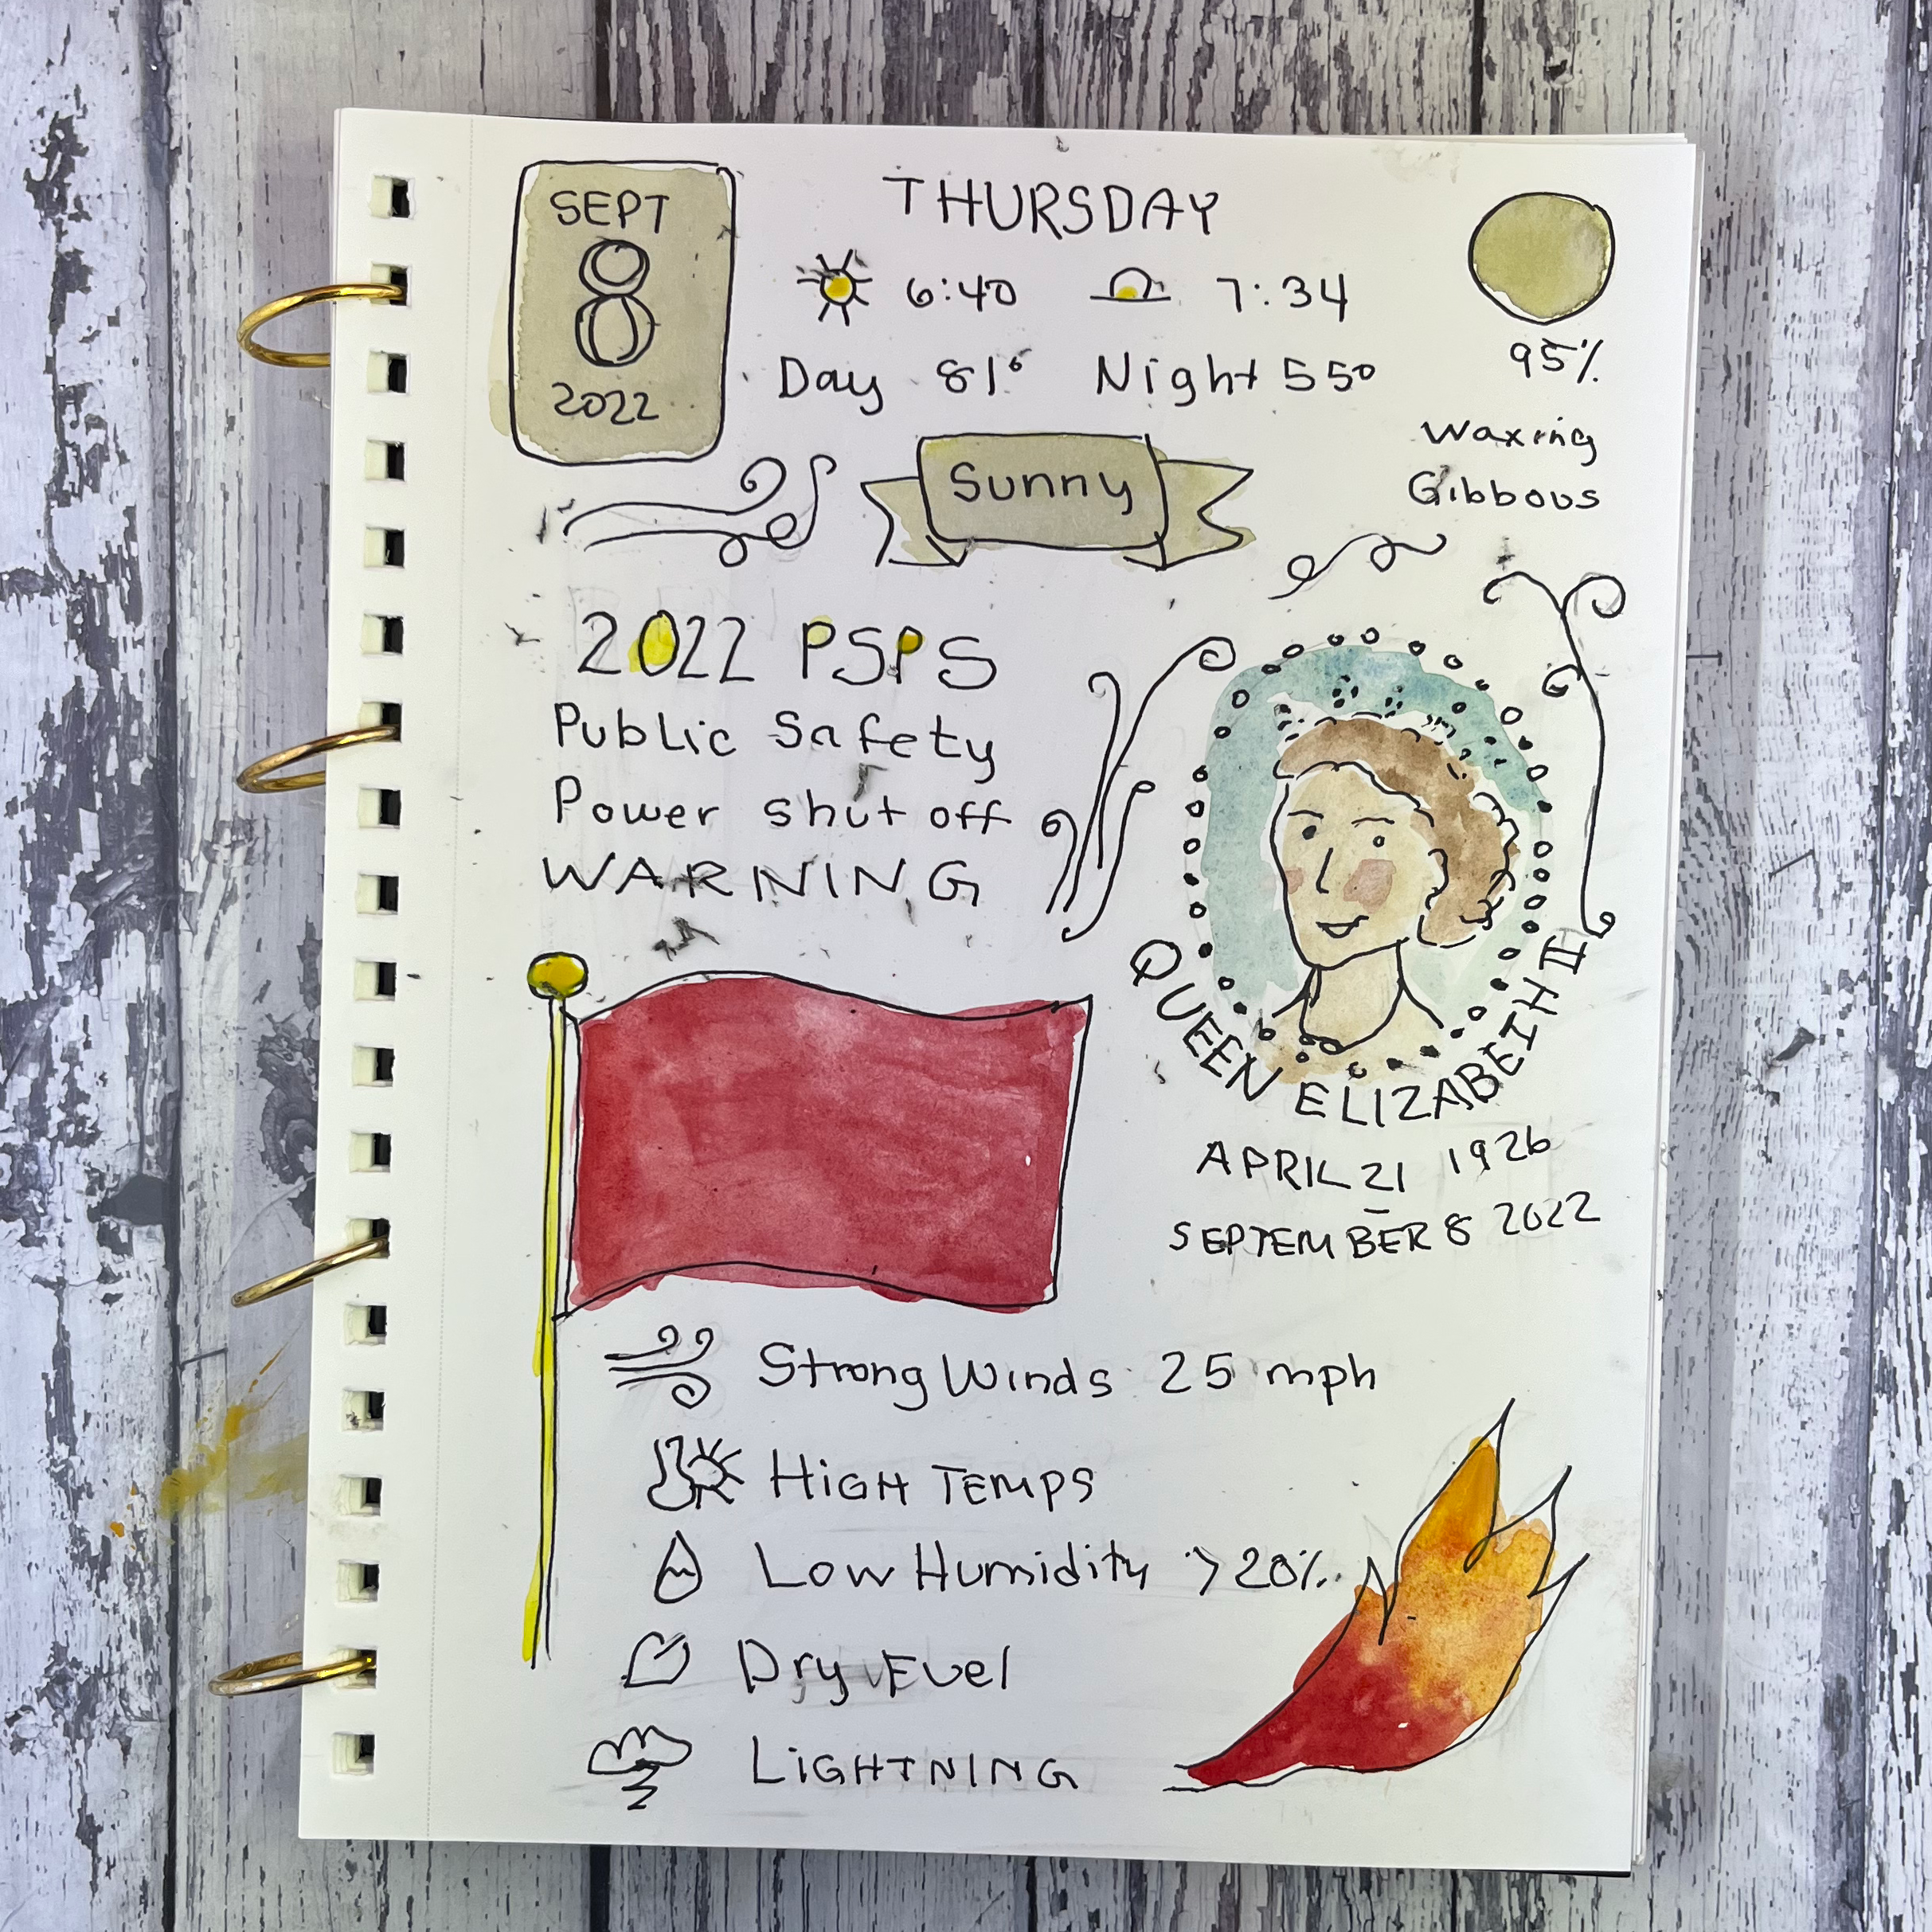 SEPT
8
2022
THURSDAY
6:40 7:34
Day 81° Night 55°
95%
Waxing
Gibbous
Sunny
2022 PSPS
Public Safety
Power shut off
WARNING
QUEEN ELIZABEIH II
APRIL 21 1926
–
SEPTEMBER 8 2022
Strong Winds 25 mph
HiGH TEMPS
Low Humidity >20%
Dry Fuel
LiGHTNING